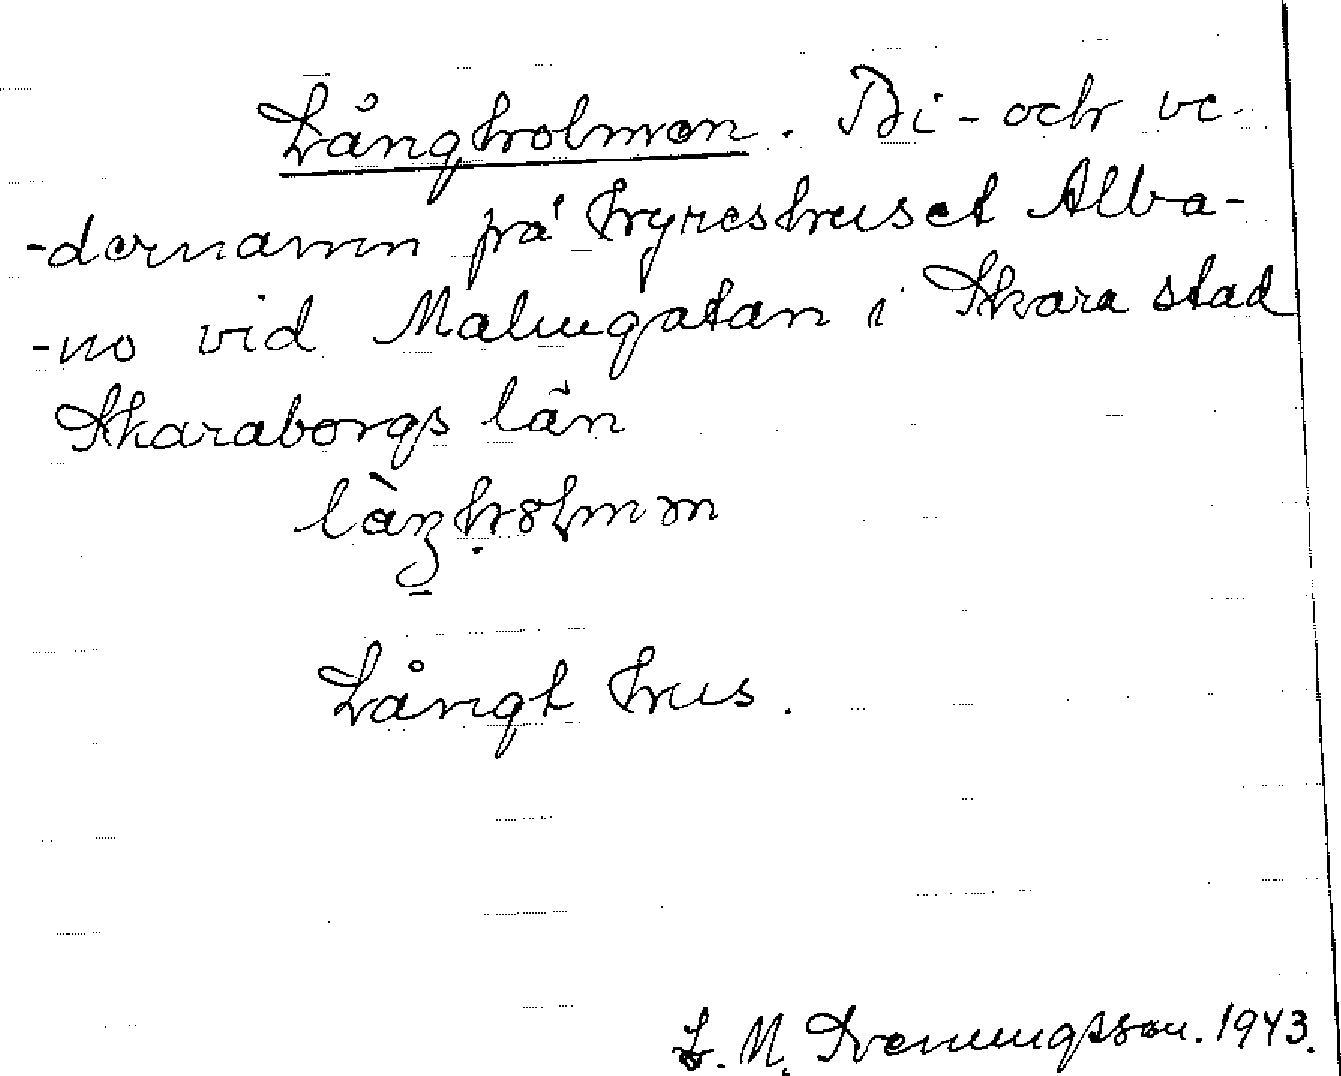 Långholmen. Bi- och ve-
-dernamn på hyreshuset Alba-
-no vid Malmgatan i Skara stad
Skaraborgs län
Långt hus.
L. M. Sveningsson. 1943.